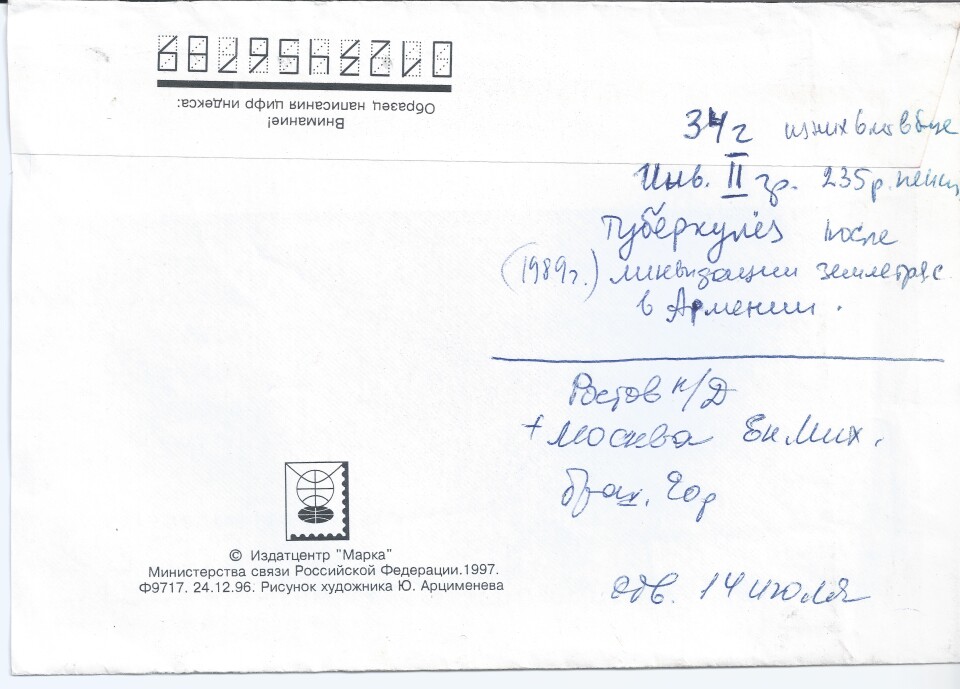 0123456789
Образец написания цифр индекса:
Внимание!
34 г
Инв. II гр. 235 р.
Туберкулёз после
(1989г.) ликвизации землетряс.
в Армении.
Ростов н/Д
+ Москва Мих.
отв. 14 июля
© Издатцентр "Марка"
Министерства связи Российской Федерации.1997.
Ф9717. 24.12.96. Рисунок художника Ю. Арцименева